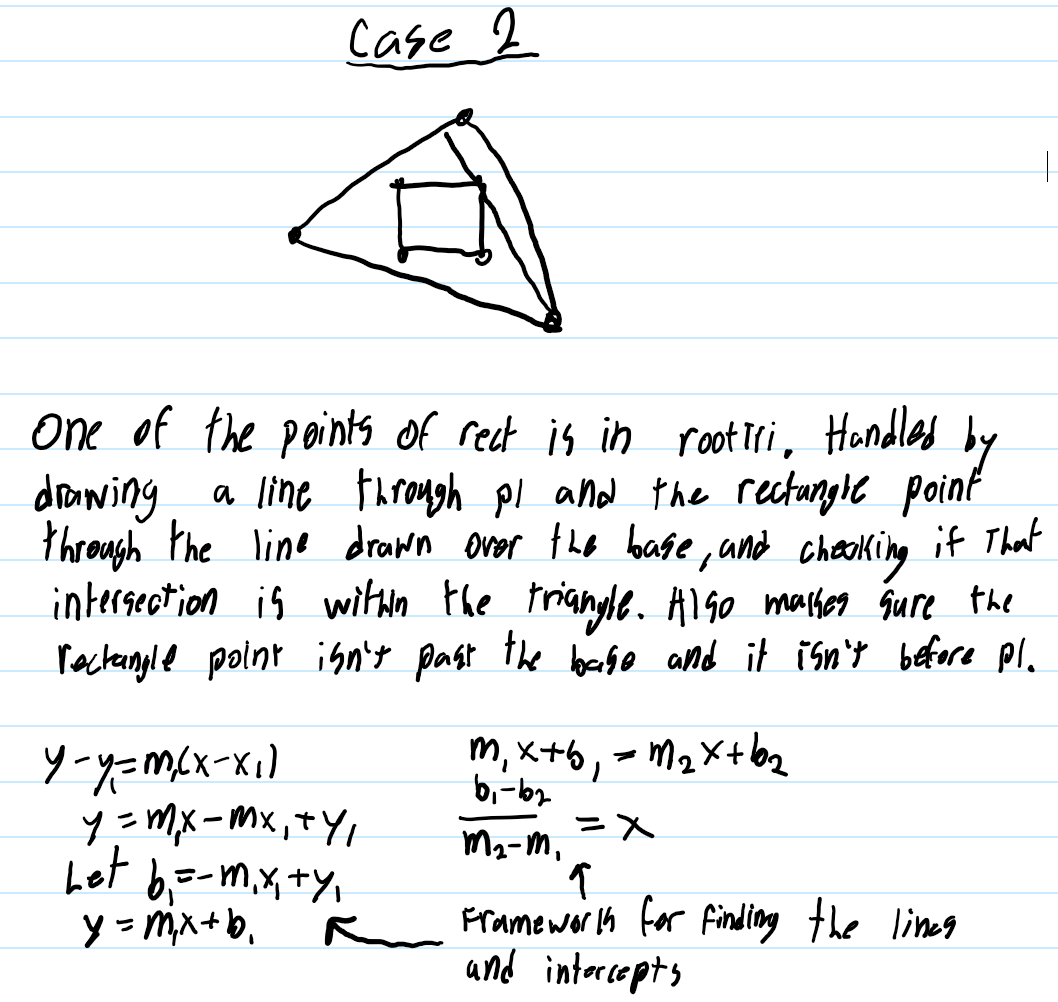 Case 2
One of the points of rect is in rootTri. Handled by
drawing a line through p1 and the rectangle point
through the line drawn over the base, and checking if that
intersection is within the triangle. Also makes sure the
rectangle point isn't past the base and it isn't before p1.
y-y₁=m₁(x-x₁)
y=m₁x-mx₁+y₁
Let b₁=-m₁x₁+y₁
y=m₁x+b₁
m₁x+b₁=m₂x+b₂
b₁-b₂
m₂-m₁ = x
Framework for finding the lines
and intercepts